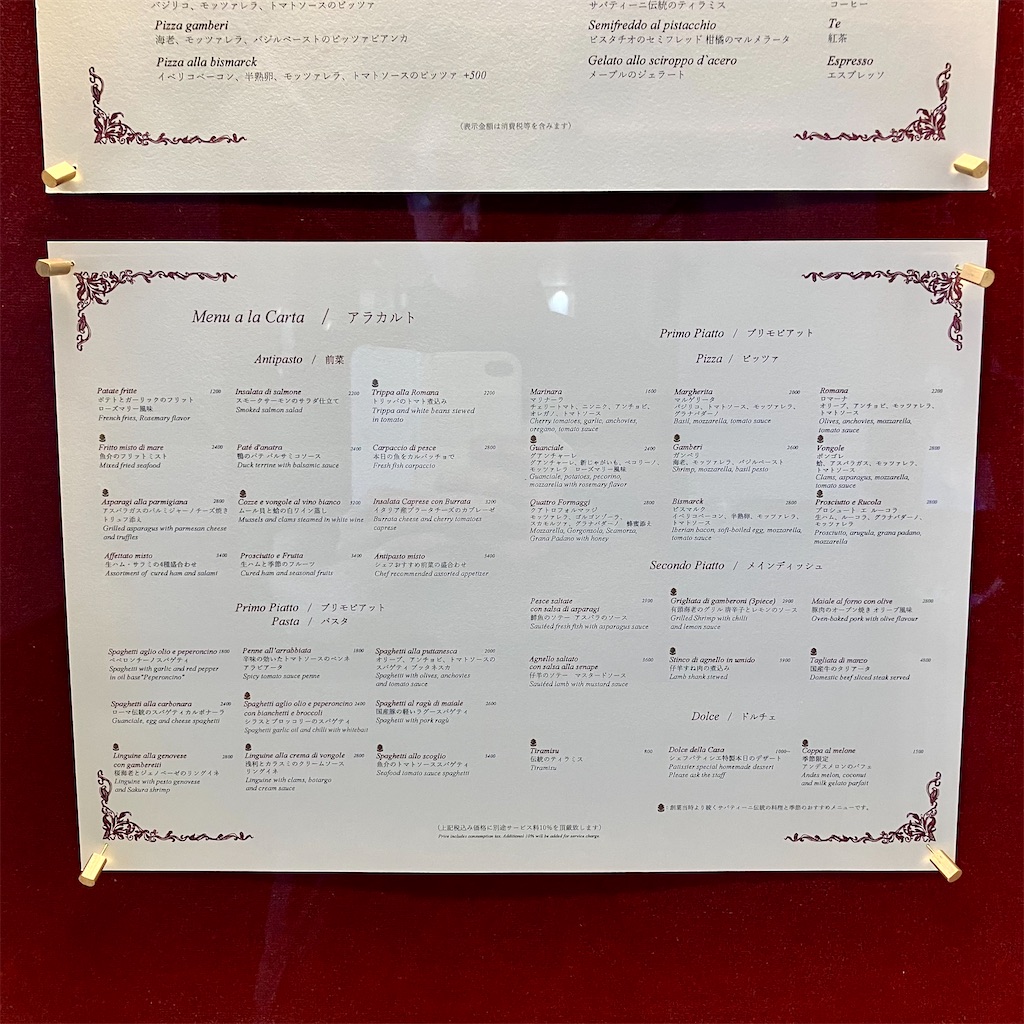 バジリコ、モッツァレラ、トマトソースのピッツァ
Pizza gamberi
海老、モッツァレラ、バジルペーストのピッツァビアンカ
Pizza alla bismarck
イベリコベーコン、半熟卵、モッツァレラ、トマトソースのピッツァ +500
サバティーニ伝統のティラミス
Semifreddo al pistacchio
ピスタチオのセミフレッド 柑橘のマルメラータ
Gelato allo sciroppo d`acero
メープルのジェラート
コーヒー
Te
紅茶
Espresso
エスプレッソ
(表示金額は消費税等を含みます)
Menu a la Carta / アラカルト
Antipasto / 前菜
Patate fritte 1200
ポテトとガーリックのフリット
ローズマリー風味
French fries, Rosemary flavor
Insalata di salmone 2200
スモークサーモンのサラダ仕立て
Smoked salmon salad
Trippa alla Romana 2200
トリッパのトマト煮込み
Trippa and white beans stewed
in tomato
Fritto misto di mare 2400
魚介のフリットミスト
Mixed fried seafood
Paté d'anatra 2500
鴨のパテ バルサミコソース
Duck terrine with balsamic sauce
Carpaccio di pesce 2800
本日の魚をカルパッチョで
Fresh fish carpaccio
Asparagi alla parmigiana 2800
アスパラガスのパルミジャーノチーズ焼き
トリュフ添え
Grilled asparagus with parmesan cheese
and truffles
Cozze e vongole al vino bianco
ムール貝と蛤の白ワイン蒸し
Mussels and clams steamed in white wine
Insalata Caprese con Burrata 3200
イタリア産ブラータチーズのカプレーゼ
Burrata cheese and cherry tomatoes
caprese
Affettato misto 3400
生ハム・サラミの4種盛合わせ
Assoriment of cured ham and salami
Prosciutto e Fruita 3400
生ハムと季節のフルーツ
Cured ham and seasonal fruits
Antipasto misto 3400
シェフおすすめ前菜の盛合わせ
Chef recommended assorted appetizer
Primo Piatto / プリモピアット
Pasta / パスタ
Spaghetti aglio olio e peperoncino 1800
ペペロンチーノスパゲティ
Spaghetti with garlic and red pepper
in oil base"Peperoncino"
Penne all'arrabbiata 1800
辛味の効いたトマトソースのペンネ
アラビアータ
Spicy tomato sauce penne
Spaghetti alla puttanesca 2000
オリーブ、アンチョビ、トマトソースの
スパゲティ プッタネスカ
Spaghetti with olives, anchovies
and tomato sauce
Spaghetti alla carbonara 2400
ローマ伝統のスパゲティカルボナーラ
Guanciale, egg and cheese spaghetti
Spaghetti aglio olio e peperoncino 2400
con bianchetti e broccoli
シラスとブロッコリーのスパゲティ
Spaghetti garlic oil and chilli with whitebait
Spaghetti al ragù di maiale 2600
国産豚の軽いラグースパゲティ
Spaghetti with pork ragù
Linguine alla genovese 2600
con gamberetti
桜海老とジェノベーゼのリングイネ
Linguine with pesto genovese
and Sakura shrimp
Linguine alla crema di vongole 2800
浅利とカラスミのクリームソース
リングイネ
Linguine with clams, botargo
and cream sauce
Spaghetti allo scoglio 3400
魚介のトマトソーススパゲティ
Seafood tomato sauce spaghetti
Primo Piatto / プリモピアット
Pizza / ピッツァ
Marinara 1600
マリナーラ
チェリートマト、ニンニク、アンチョビ、
オレガノ、トマトソース
Cherry tomatoes, garlic, anchovies,
oregano, tomato sauce
Margherita 2000
マルゲリータ
バジリコ、トマトソース、モッツァレラ、
グラナパダーノ
Basil, mozzarella, tomato sauce
Romana 2200
ロマーナ
オリーブ、アンチョビ、モッツァレラ、
トマトソース
Olives, anchovies, mozzarella,
tomato sauce
Guanciale 2400
グアンチャーレ
グアンチャーレ、新じゃがいも、ペコリーノ、
モッツァレラ ローズマリー風味
Guanciale, potatoes, pecorino,
mozzarella with rosemary flavor
Gamberi 2600
ガンベリ
海老、モッツァレラ、バジルペースト
Shrimp, mozzarella, basil pesto
Vongole 2800
ボンゴレ
蛤、アスパラガス、モッツァレラ、
トマトソース
Clams, asparagus, mozzarella,
tomato sauce
Quattro Formaggi 2800
クアトロフォルマッジ
モッツァレラ、ゴルゴンゾーラ、
スカモルツァ、グラナパダーノ 蜂蜜添え
Mozzarella, Gorgonzola, Scamorza,
Grana Padano with honey
Bismarck 2800
ビスマルク
イベリコベーコン、半熟卵、モッツァレラ、
トマトソース
Iberian bacon, soft-boiled egg, mozzarella,
tomato sauce
Prosciutto e Rucola 2800
プロシュート エ ルーコラ
生ハム、ルーコラ、グラナパダーノ、
モッツァレラ
Prosciutto, arugula, grana padano,
mozzarella
Secondo Piatto / メインディッシュ
Pesce saltate 2800
con salsa di asparagi
鮮魚のソテー アスパラのソース
Sautéed fresh fish with asparagus sauce
Grigliata di gamberoni (3piece) 2900
有頭海老のグリル 唐辛子とレモンのソース
Grilled Shrimp with chilli
and lemon sauce
Maiale al forno con olive 2800
豚肉のオーブン焼き オリーブ風味
Oven-baked pork with olive flavour
Agnello saltato 3600
con salsa alla senape
仔羊のソテー マスタードソース
Sautéed lamb with mustard sauce
Stinco di agnello in umido 3400
仔羊すね肉の煮込み
Lamb shank stewed
Tagliata di manzo 4800
国産牛のタリアータ
Domestic beef sliced steak served
Dolce / ドルチェ
Tiramisu 900
伝統のティラミス
Tiramisu
Dolce della Casa 1000~
シェフパティシエ特製本日のデザート
Patissier special homemade dessert
Please ask the staff
Coppa al melone 1500
季節限定
アンデスメロンのパフェ
Andes melon, coconut
and milk gelato parfait
: 創業当時より続くサバティーニ伝統の料理と季節のおすすめメニューです。
(上記税込み価格に別途サービス料10%を頂戴致します)
Price includes consumption tax. Additional 10% will be added for service charge.